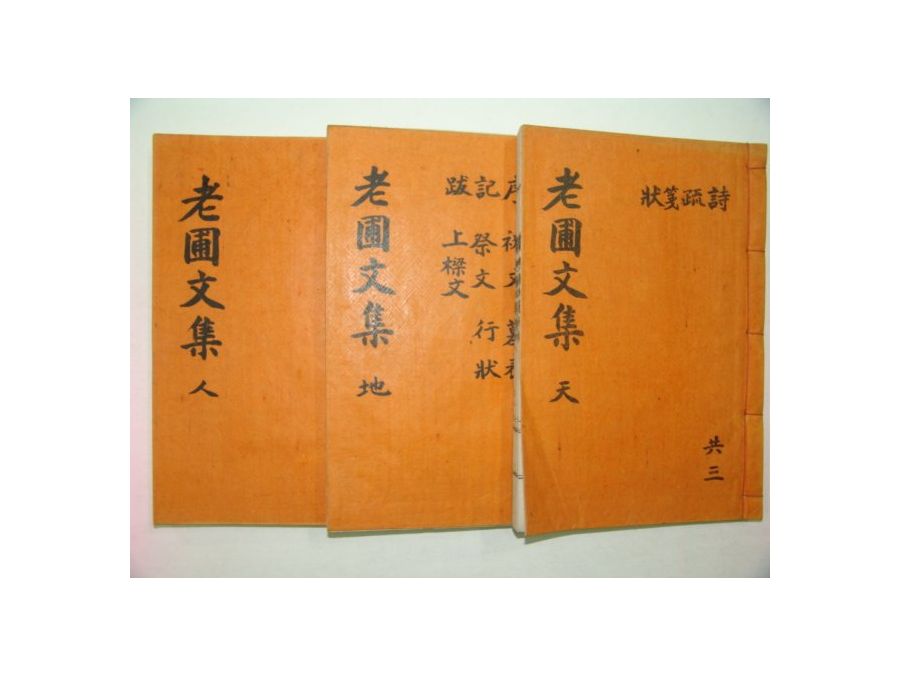 詩疏箋狀
老圃文集 天
共三
記 祭文 行狀
跋 上樑文
老圃文集 地
老圃文集 人